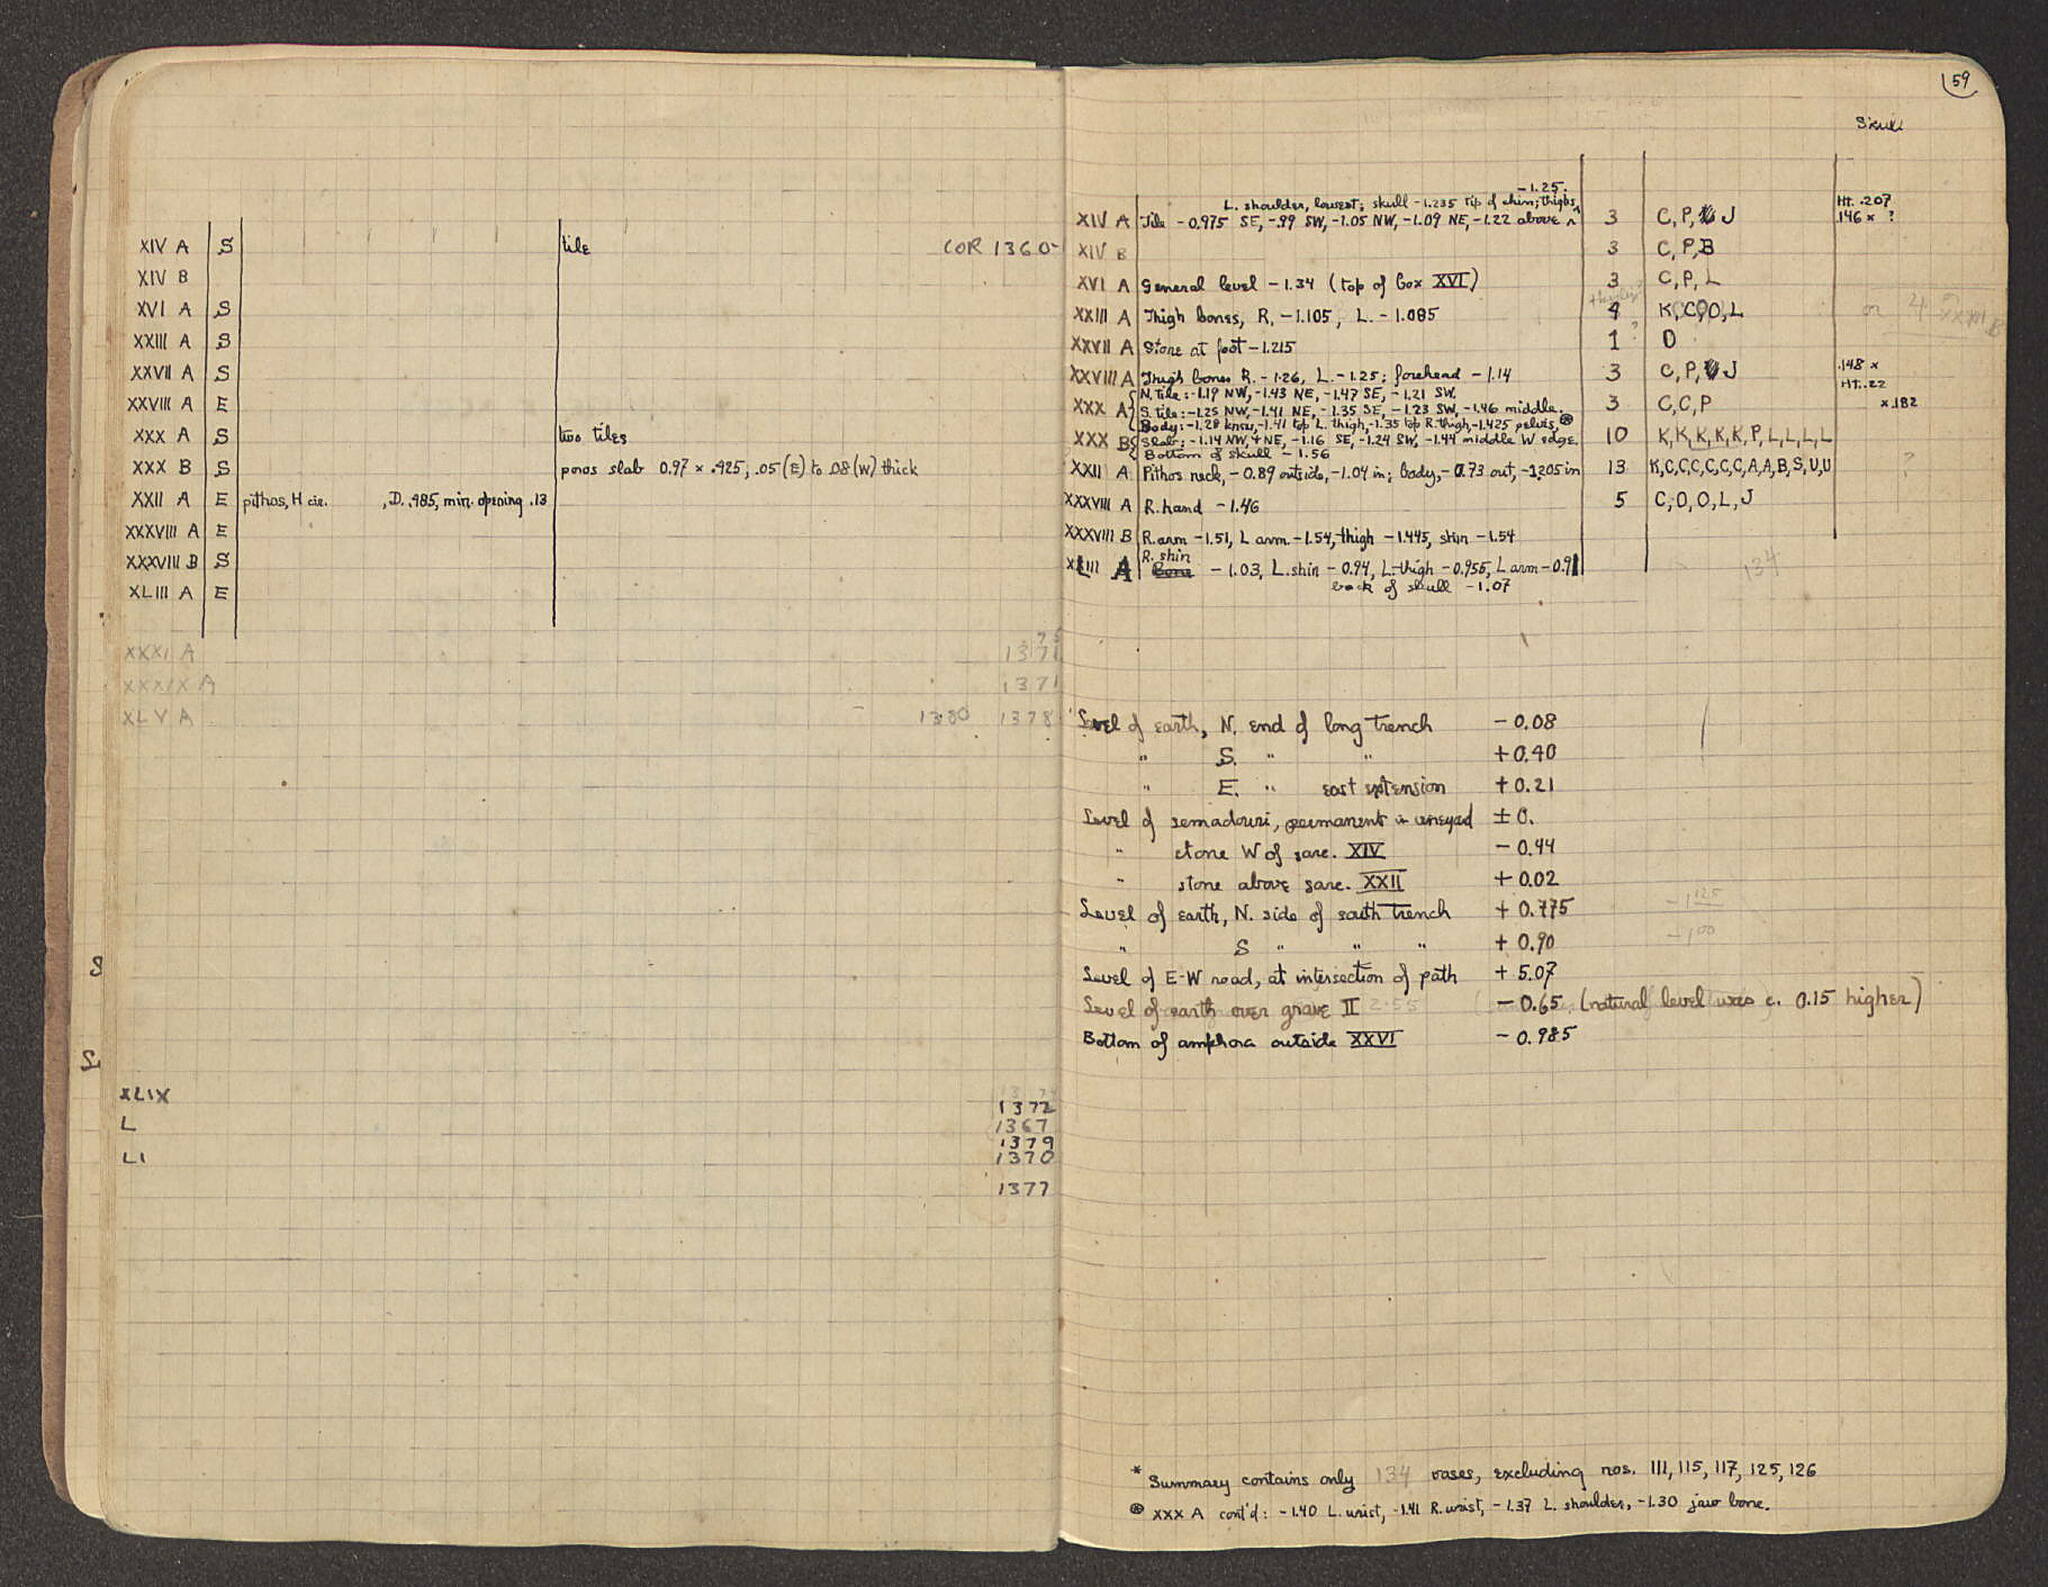 XIV A S tile COR 1360
XIV B
XVI A S
XXIII A S
XXVII A S
XXVIII A E
XXX A S two tiles
XXX B S poros slab 0.97 × .425, .05 (E) to .08 (W) thick
XXII A E pithos, H cir. , D. .485, min. opening .13
XXXVIII A E
XXXVIII B S
XLIII A E
75
XXXI A 1371
XXXIX A 1371
XLV A 1380 1378
S
S
XLIX
1372
L 1367
1379
LI 1370
1377
59
Skull
-1.25.
L. shoulder, lowest; skull -1.235 tip of chin; thighs Ht. .207
XIV A Tile -0.975 SE, -.99 SW, -1.05 NW, -1.09 NE, -1.22 above 3 C, P, J .146 × ?
XIV B 3 C, P, B
XVI A General level -1.34 (top of box XVI) 3 C, P, L
XXIII A Thigh bones, R. -1.105, L. -1.085 4 K, C, O, L or 4 XXIII B
XXVII A Stone at foot -1.215 1 ? O
XXVIII A Thigh bones R. -1.26, L. -1.25; forehead -1.14 3 C, P, J .148 ×
Ht. .22
N. tile: -1.19 NW, -1.43 NE, -1.47 SE, -1.21 SW.
XXX A S. tile: -1.25 NW, -1.41 NE, -1.35 SE, -1.23 SW, -1.46 middle. 3 C, C, P × .182
Body: -1.28 knee, -1.41 top L. thigh, -1.35 top R. thigh, -1.425 pelvis, ⊛
XXX B Slab: -1.14 NW, + NE, -1.16 SE, -1.24 SW, -1.44 middle W edge. 10 K, K, K, K, K, P, L, L, L, L
Bottom of skull -1.56
XXII A Pithos neck, -0.89 outside, -1.04 in; body, -0.73 out, -1.205 in 13 K, C, C, C, C, C, C, A, A, B, S, U, U ?
XXXVIII A R. hand -1.46 5 C, O, O, L, J
XXXVIII B R. arm -1.51, L arm -1.54, thigh -1.445, shin -1.54
R. shin
XLIII A Bone -1.03, L. shin -0.94, L. thigh -0.955, L arm -0.91 134
back of skull -1.07
Level of earth, N. end of long trench - 0.08
" S. " " + 0.40
" E. " east extension + 0.21
Level of semadouri, permanent in vineyard ± 0.
" stone W of sarc. XIV - 0.44
" stone above sarc. XXII + 0.02
Level of earth, N. side of south trench + 0.775 -1 125
" S " " " + 0.90 -1 00
Level of E-W road, at intersection of path + 5.07
Level of earth over grave II - 0.65 (natural level was c. 0.15 higher)
Bottom of amphora outside XXVI - 0.985
* Summary contains only 134 vases, excluding nos. 111, 115, 117, 125, 126
⊛ XXX A cont'd: -1.40 L. wrist, -1.41 R. wrist, -1.37 L. shoulder, -1.30 jaw bone.